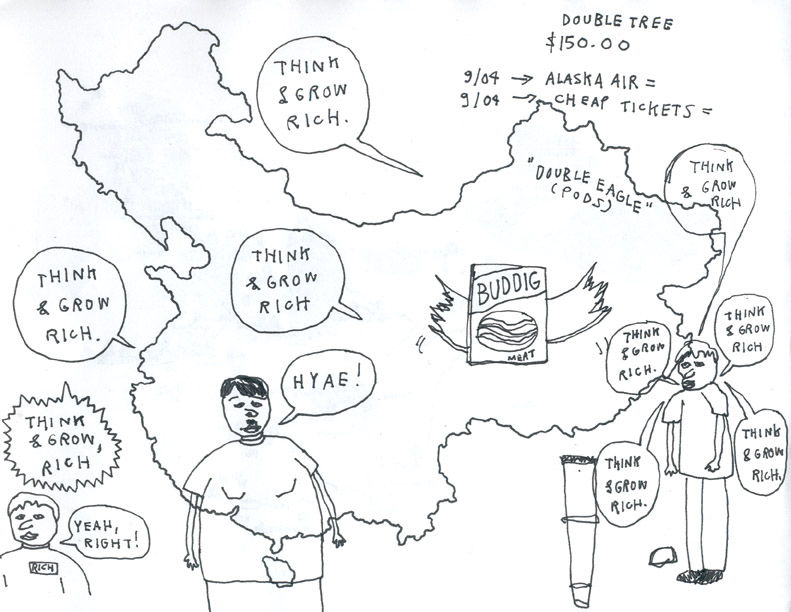 DOUBLE TREE
$150.00
9/04 → ALASKA AIR =
9/04 → CHEAP TICKETS =
THINK
& GROW
RICH.
"DOUBLE EAGLE"
(PODS)
THINK
& GROW
RICH
THINK
& GROW
RICH.
THINK
& GROW
RICH
BUDDIG
MEAT
THINK
& GROW
RICH.
THINK
& GROW
RICH
HYAE!
THINK
& GROW,
RICH
THINK
& GROW
RICH.
THINK
& GROW
RICH.
YEAH,
RIGHT!
RICH